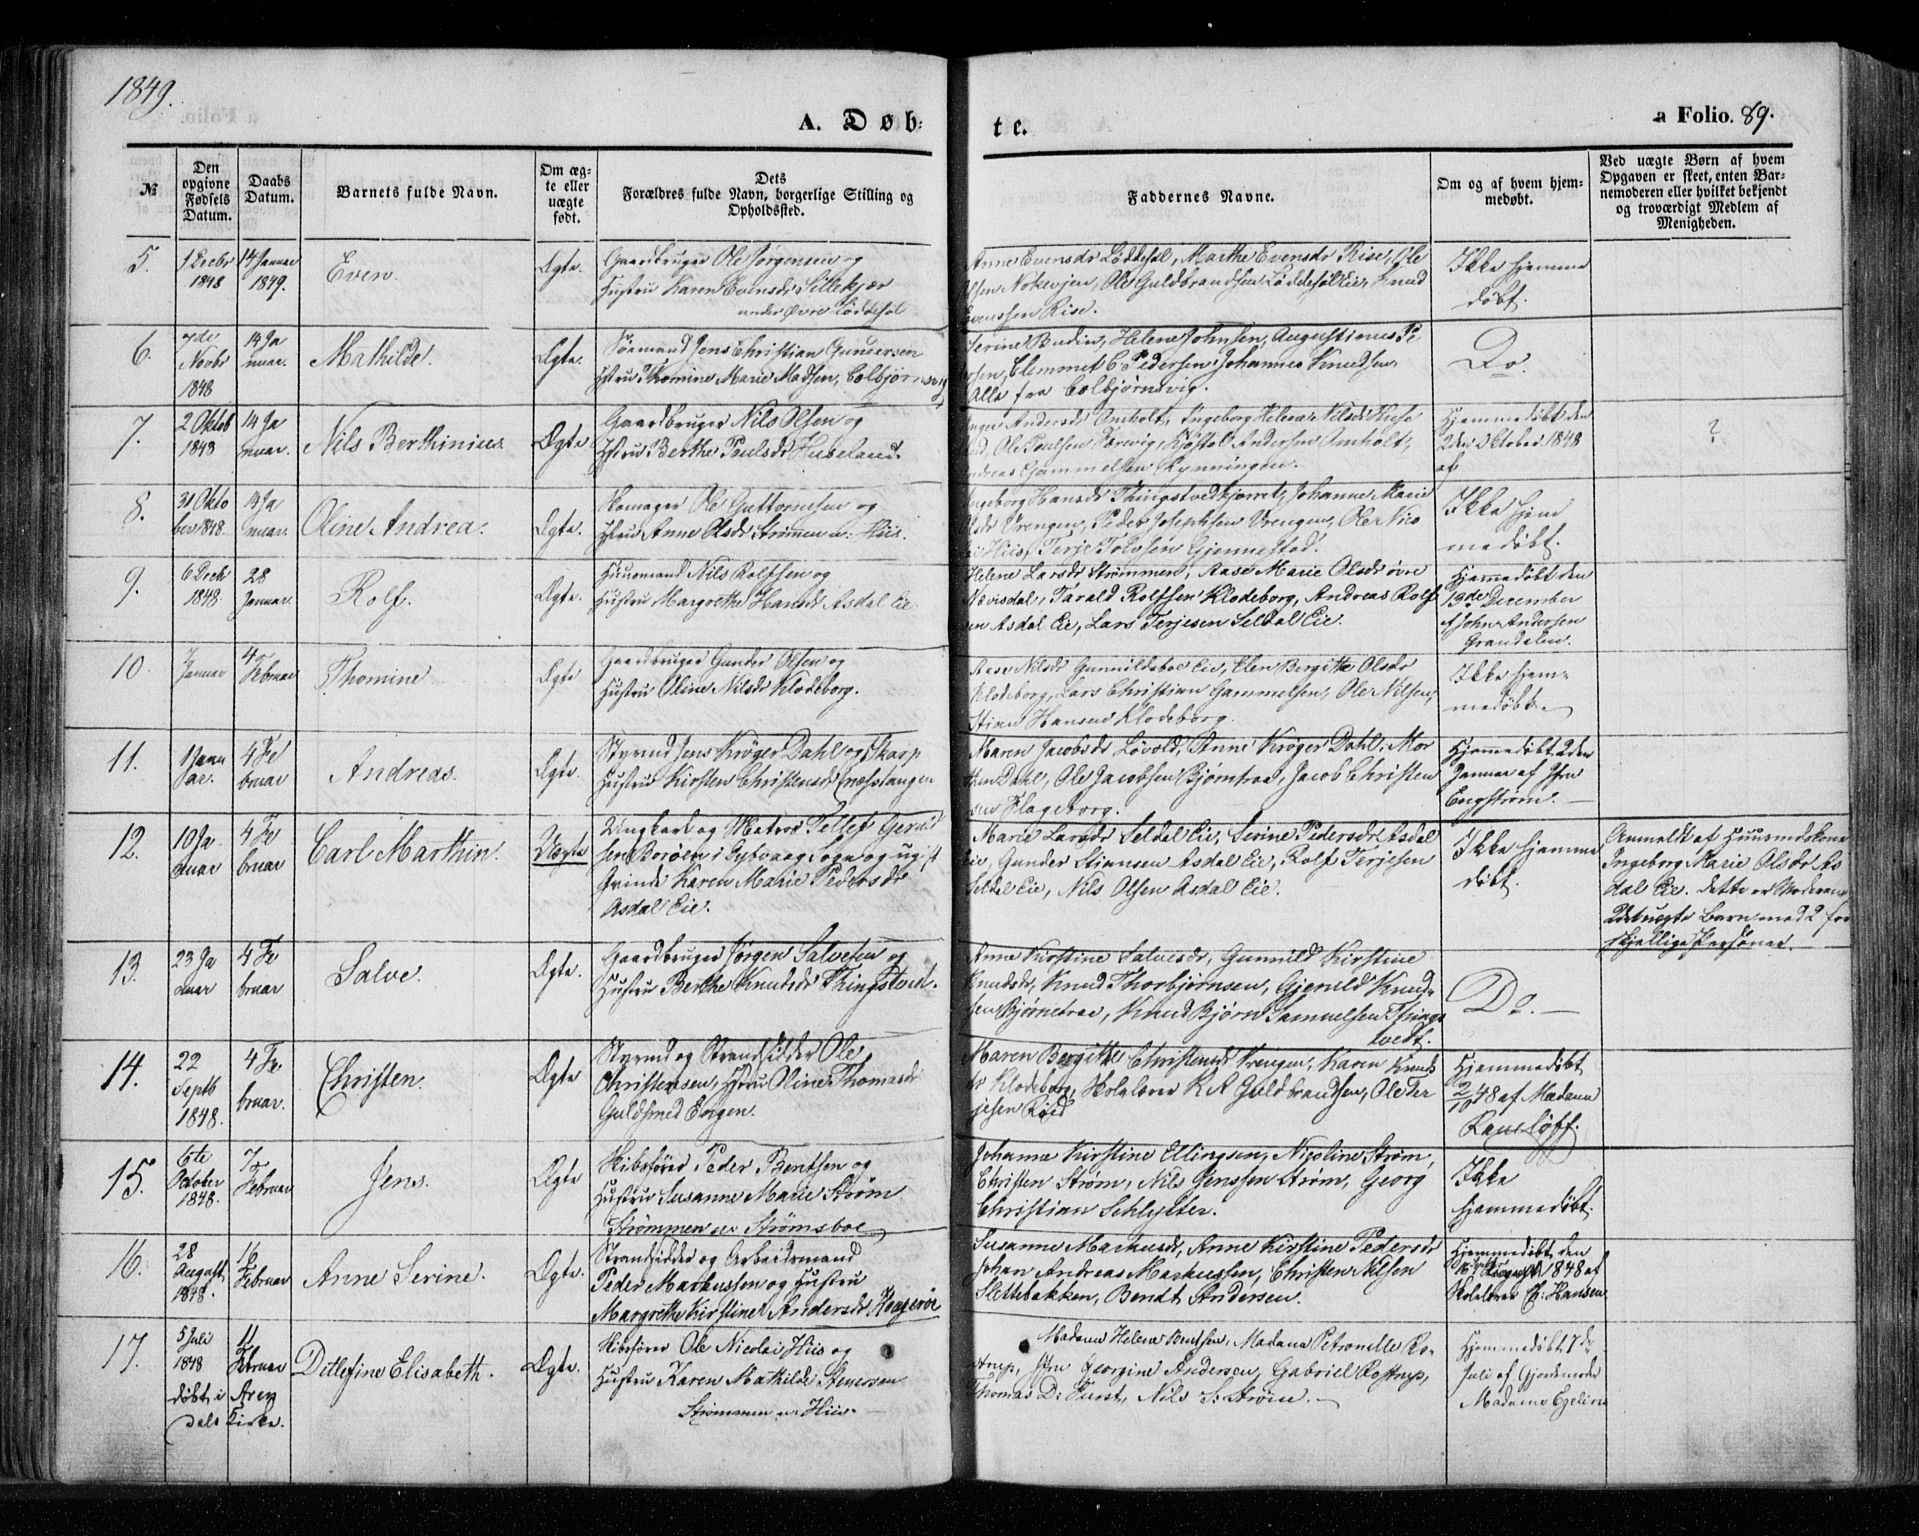 1849.
A. Døb-
te.
a Folio. 89.
№
Den opgivne Fødsels Datum.
Daabs Datum.
Barnets fulde Navn.
Om ægte eller uægte født.
Dets Forældres fulde Navn, borgerlige Stilling og Opholdssted.
Faddernes Navne.
Om og af hvem hjemmedøbt.
Ved uægte Børn af hvem Opgaven er skeet, enten Barnemoderen eller hvilket bekjendt og troværdigt Medlem af Menigheden.
5.
1 Decbr 1848
14 Januar 1849.
Even.
Ægte.
Gaardbruger Ole Jørgensen og
Hustru Karen Evensdr Sillekjær
under Øvre Løddesøl
Anne Evensdr Løddesøl, Marthe Evensdr Rise, Ole
Olsen Nokevjen, Ole Guldbrandsen Løddesøl Eie, Knud
Evenssen Rise.
Ikke hjemme
døbt.
6.
7de Novbr 1848
14 Januar.
Mathilde.
Ægte.
Sømand Jens Christian Gundersen
Hstru Thomine Marie Madsen, Colbjørnsvig
Serine Budin, Helene Johnsen, Augustinus
Clemmet C. Pedersen, Johannes Knudsen,
Alle fra Colbjørnsvig.
Do.
7.
2 Oktob 1848
14 Januar.
Nils Berthinius.
Ægte
Gaardbruger Nils Olsen og
Hstru Berthe Poulsdr Huseland.
Andersdr Omholt, Ingeborg Helene Nilsdr Huse
land, Ole Poulsen Andersen Omholt,
Andreas Gammelsen Rynningen.
Hjemmedøbt den
2den Oktober 1848
af
?
8.
31 Oktober 1848.
14 Januar.
Oline Andrea.
Ægte.
Skomager Ole Guttormsen og
Hstru Anne Olsdr Strømmen u: Hiis.
Ingeborg Hansdr Thingstvedkjerret, Johanne Marie
Olsdr Vrengen, Peder Josephsen Vrengen, Ole Nico
lai Hiis, Terje Tolvsen Gjennestad.
Ikke hjem
medøbt.
9.
6 Decbr 1848.
28 Januar.
Rolf.
Ægte.
Huusmand Nils Rolfsen og
Hustru Margrethe Hansdr Asdal Eie.
Helene Larsdr Strømmen, Aase Marie Olsdr øvre
Nævisdal, Tarald Rolfsen Klodeborg, Andreas Rolf
sen Asdal Eie, Lars Terjesen Seldal Eie.
Hjemedøbt den
13de December
af John Andersen
Grandalen.
10.
7 Januar
4 Februar
Thomine
Ægte
Gaardbruger Gunder Olsen og
Hustru Oline Nilsdr Klodeborg.
Aase Nilsdr Gunnildsboe Eie, Elen Bergitte Olsdr
Klodeborg, Lars Christian Gammelsen, Ole Nilsen,
Stian Hansen Klodeborg.
Ikke hjem-
medøbt.
11.
1 Januar.
4 Februar
Andreas.
Ægte
Styrmd Jens Krøger Dahl og
Hustru Kirsten Christensdr Skarpnæstangen
Maren Jacobsdr Løvold, Anne Krøger Dahl, Mor
then Dahl, Ole Jacobsen Bjørntræ, Jacob Christen
sen Flageborg.
Hjemedøbt 2den
Januar af Fru
Engstrøm.
12.
10 Januar
4 Februar
Carl Marthin.
Uægte
Ungkarl og Matros Tellef Geruld
sen Borøen i Dybvaag Sogn og ugift
Qvinde Karen Marie Pedersdr
Asdal Eie.
Marie Larsdr Seldal Eie, Serine Pedersdr Asdal
Eie, Gunder Stiansen Asdal Eie, Rolf Terjesen
Seldal Eie, Nils Olsen Asdal Eie.
Ikke hjemme
døbt.
Anmeldt af Huusmdskone
Ingeborg Marie Olsdr As
dal Eie. Dette er Moderens
2det uægte Barn med 2 for
skjellige Personer.
13.
23 Januar
4 Februar
Salve.
Ægte.
Gaardbruger Jørgen Salvesen og
Hustru Berthe Knudsdr Thingstvedt.
Anne Kirstine Salvesdr, Gunnild Kirstine
Knudsdr, Knud Thorbjørnsen, Gjeruld Knud-
sen Bjørnetræ, Knud Bjørn Samuelsen Things
tvedt.
Do.
14.
22 Septb 1848.
4 Februar.
Christen.
Ægte
Styrmd og Strandsidder Ole
Christensen, Hstru Oline Thomasdr
Guldsmed Engen.
Maren Bergitte Christensdr Vrengen, Karen Knuds
dr Klodeborg, Skolelærer K A Guldbrandsen, Ole Ter
jesen Røed
Hjemmedøbt
2/10 48 af Madam
Ranløff.
15.
6te October 1848.
7 Februar
Jens.
Ægte
Skibsfører Peder Bentsen og
Hustru Susanne Marie Strøm
Strømmen ved Strømsboe
Johanne Kirstine Ellingsen, Nicoline Strøm,
Christen Strøm, Nils Jenssen Strøm, Georg
Christian Schlytter.
Ikke
hjemmedøbt.
16.
28 August 1848.
Februar
Anne Serine.
Ægte.
Strandsidder og Arbeidsmand
Peder Markussen og Hustru
Margrethe Kirstine Andersdr, Kongerøe
Susanne Markusdr, Anne Kirstine Pedersdr
Johan Andreas Markussen, Christen Nilsen
Slettebakken, Bendt Andersen.
Hjemmedøbt den
1848 af
Skolelærer Hansen
17.
5 Juli 1848
11 Februar
døbt i Aren
dals Kirke.
Ditlefine Elisabeth.
Ægte.
Skibsfører Ole Nicolai Hiis og
Hustru Karen Mathilde Stenersen
Strømmen ved Hiis.
Madame Helene Bentsen, Madame Petronelle Ro-
strup, Fru Georgine Andersen, Gabriel Rostrup,
Thomas D: Furst, Nils S: Strøm.
Hjemmedøbt 7de
Juli af Gjordemoder
Madame Egeline